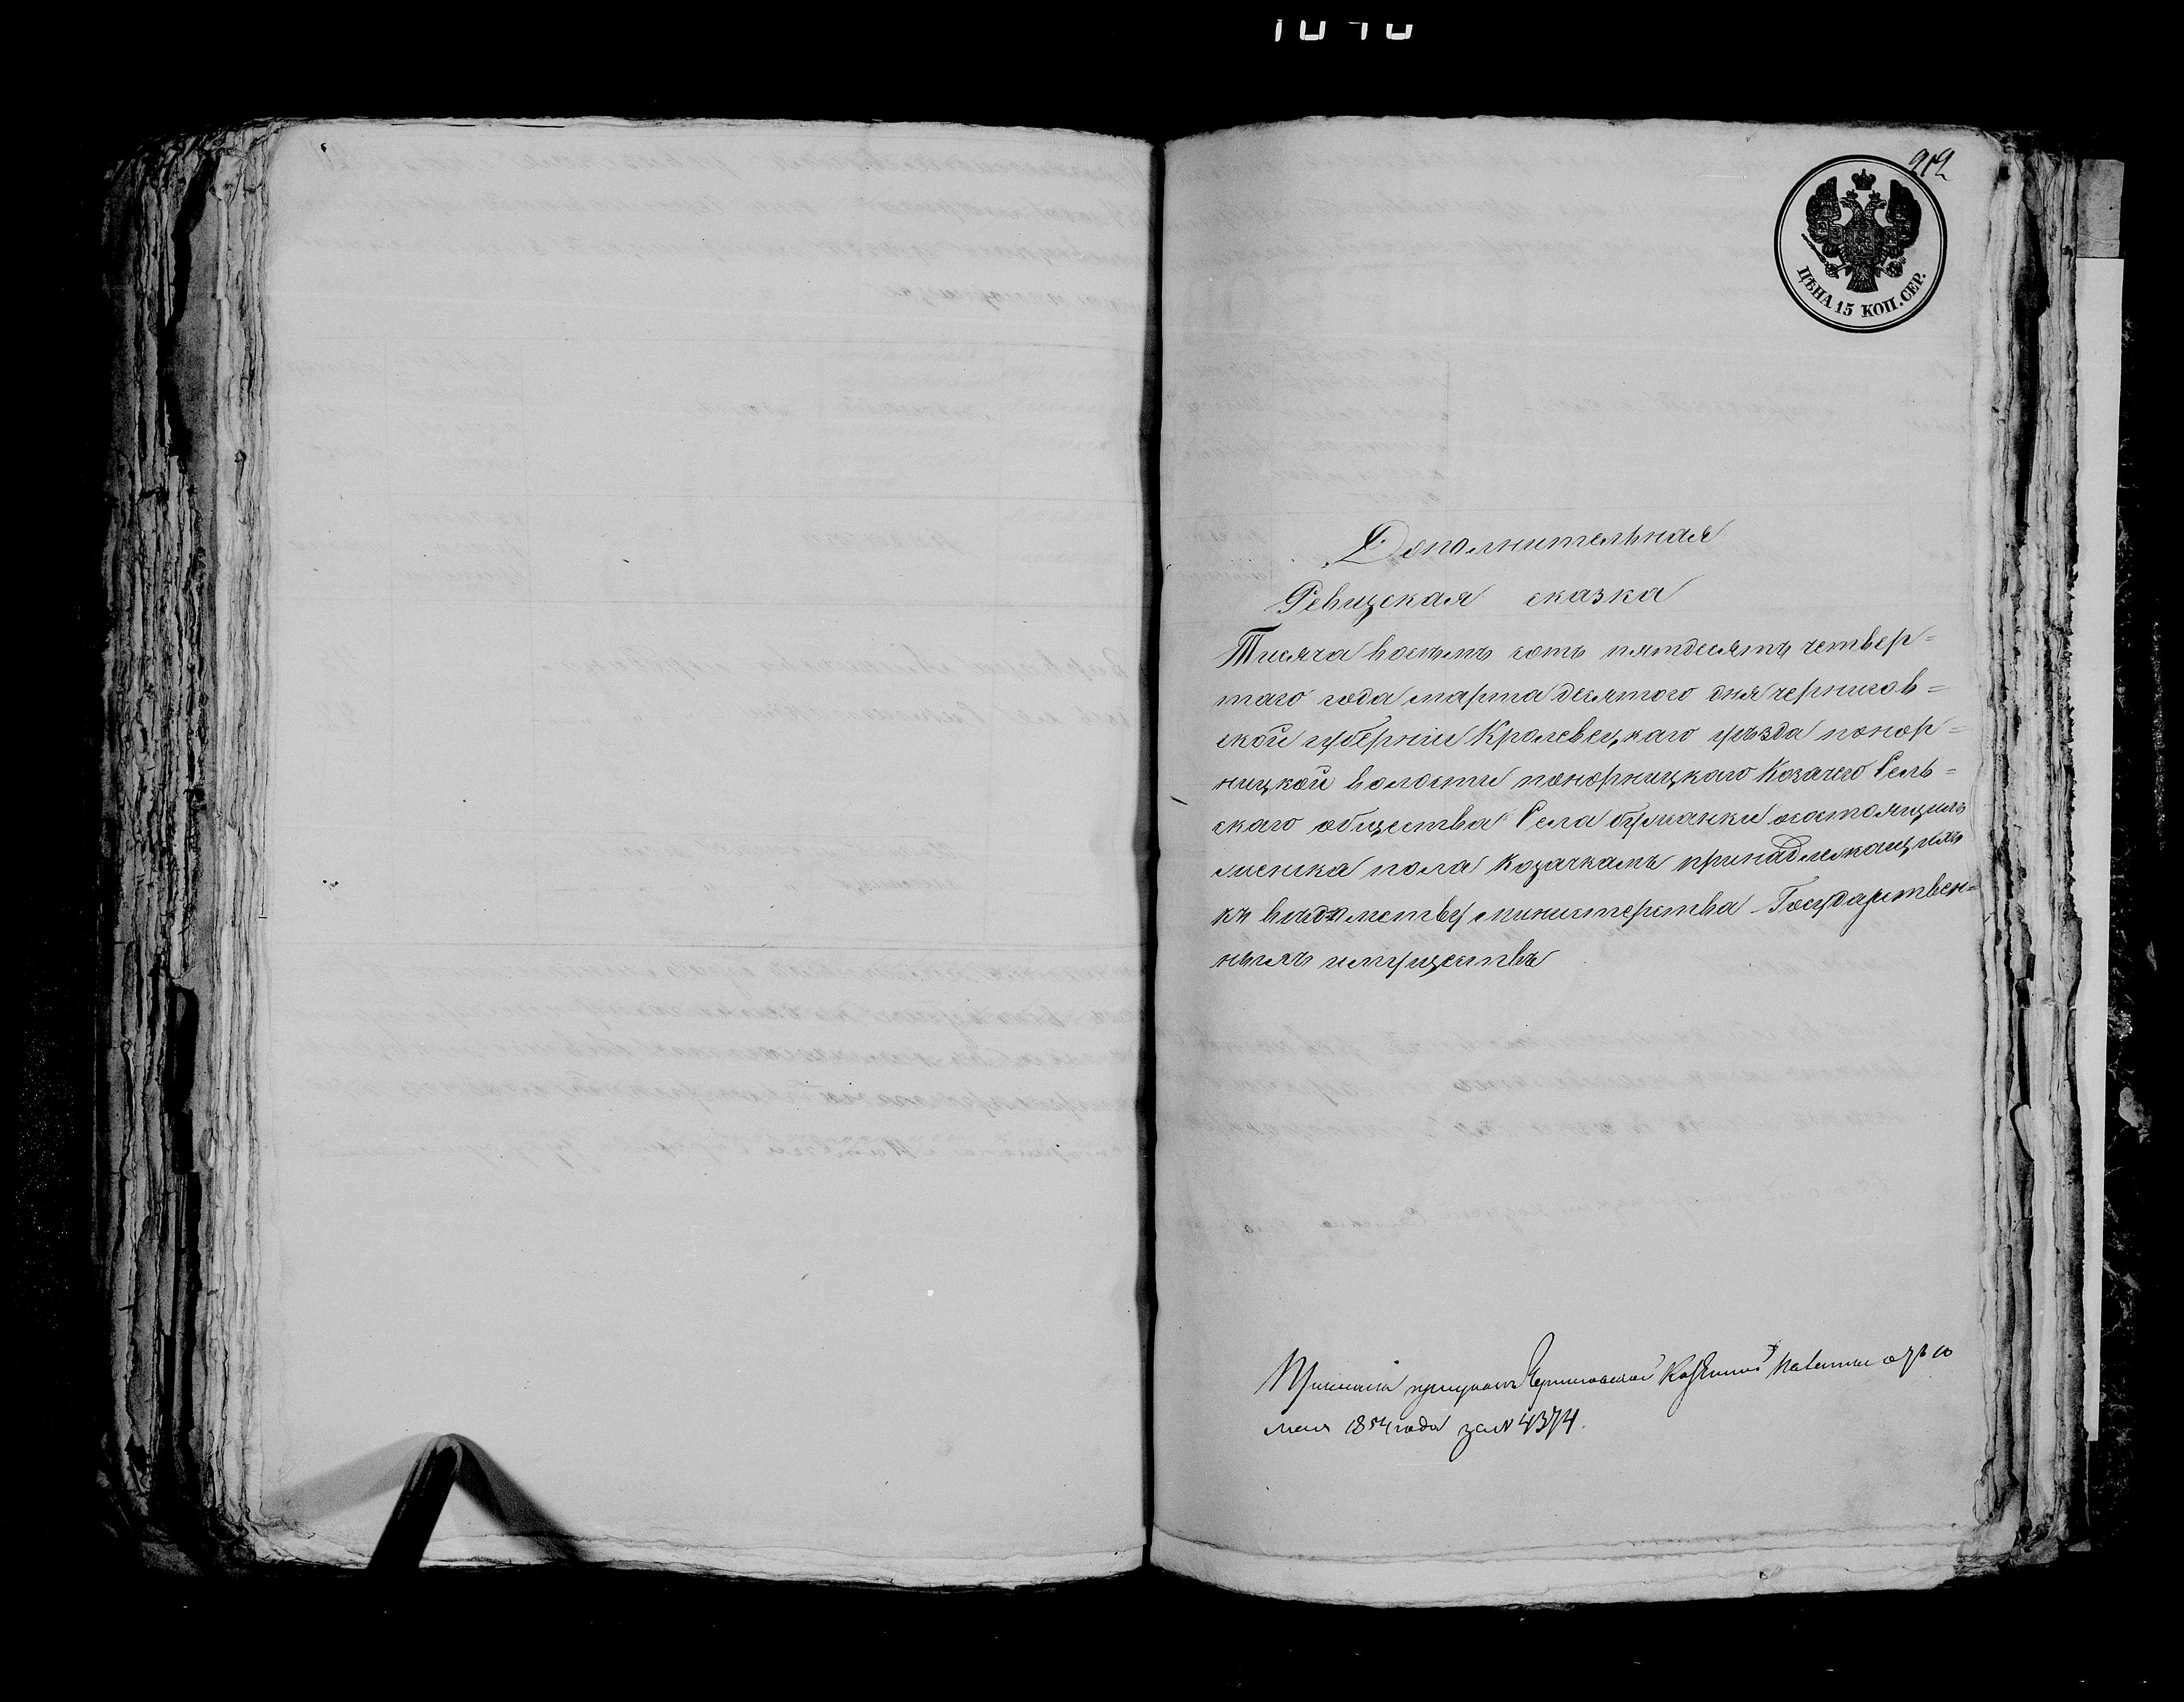 212
ЦѢНА 15 КОП. СЕР.
Дополнительная
Ревизская сказка
Тисяча восемъ сотъ пятдесятъ четвер=
таго года марта десятого дня чернигов=
ской губерніи Кролевецкаго уѣзда понор=
ницкой волости понорницкаго Козачего Сель=
скаго общества Села бужанки о состоящихъ
женска пола козачкамъ принадлежащихъ
къ вѣдомству министерства Государствен=
ныхъ имуществъ
Черниговской Казенной Палаты отъ 10
мая 1854 года за № 4374.